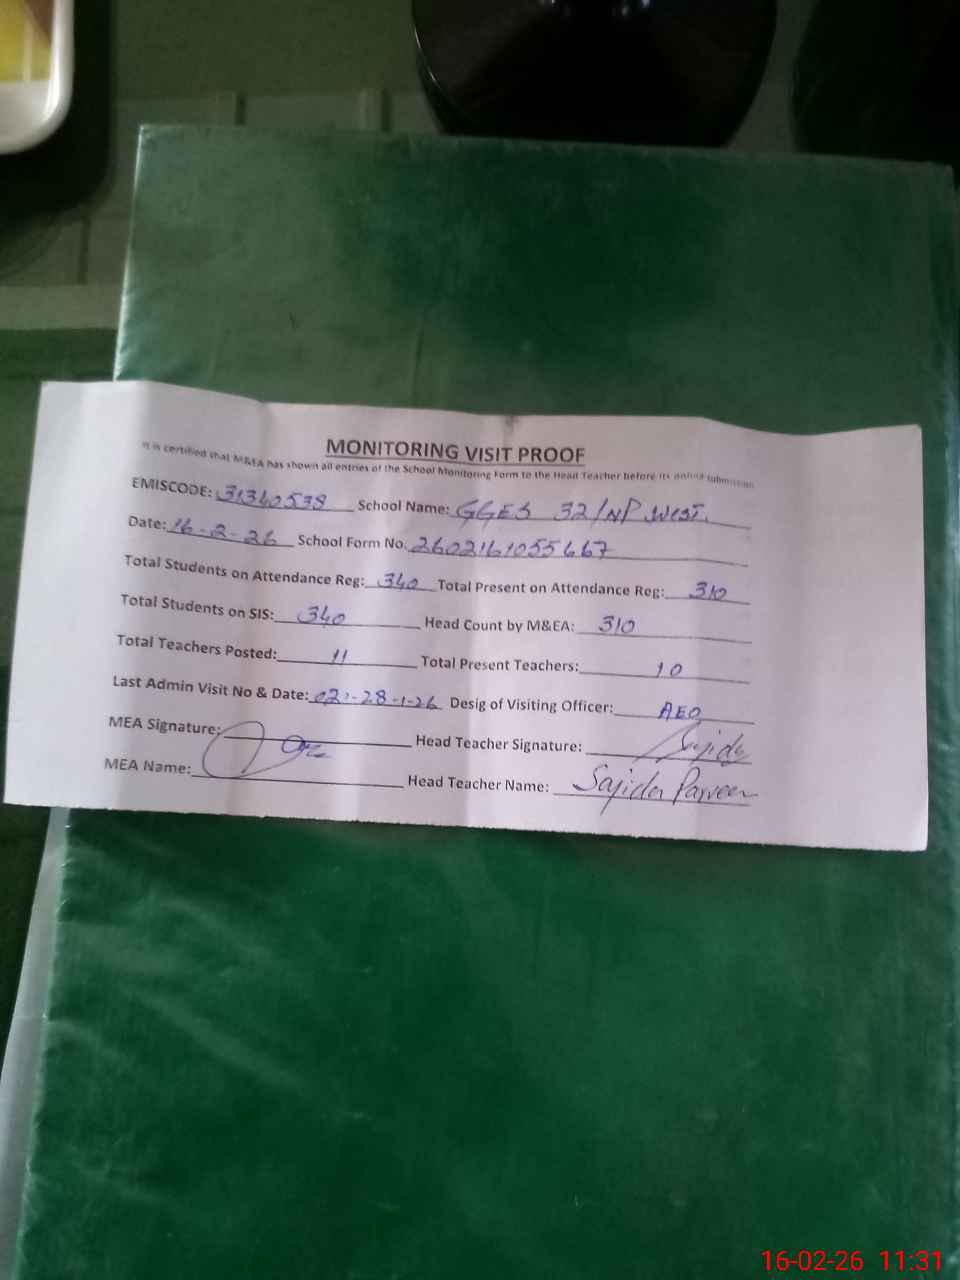 MONITORING VISIT PROOF
It is certified that M&EA has shown all entries of the School Monitoring Form to the Head Teacher before its online submission
EMISCODE: 31340538 School Name: GGES 32/NP West.
Date: 16-2-26 School Form No: 2602161055667
Total Students on Attendance Reg: 340 Total Present on Attendance Reg: 310
Total Students on SIS: 340 Head Count by M&EA: 310
Total Teachers Posted: 11 Total Present Teachers: 10
Last Admin Visit No & Date: 02:-28-1-26 Desig of Visiting Officer: AEO
MEA Signature: Head Teacher Signature: Sajida
MEA Name: Head Teacher Name: Sajida Parveen
16-02-26 11:31